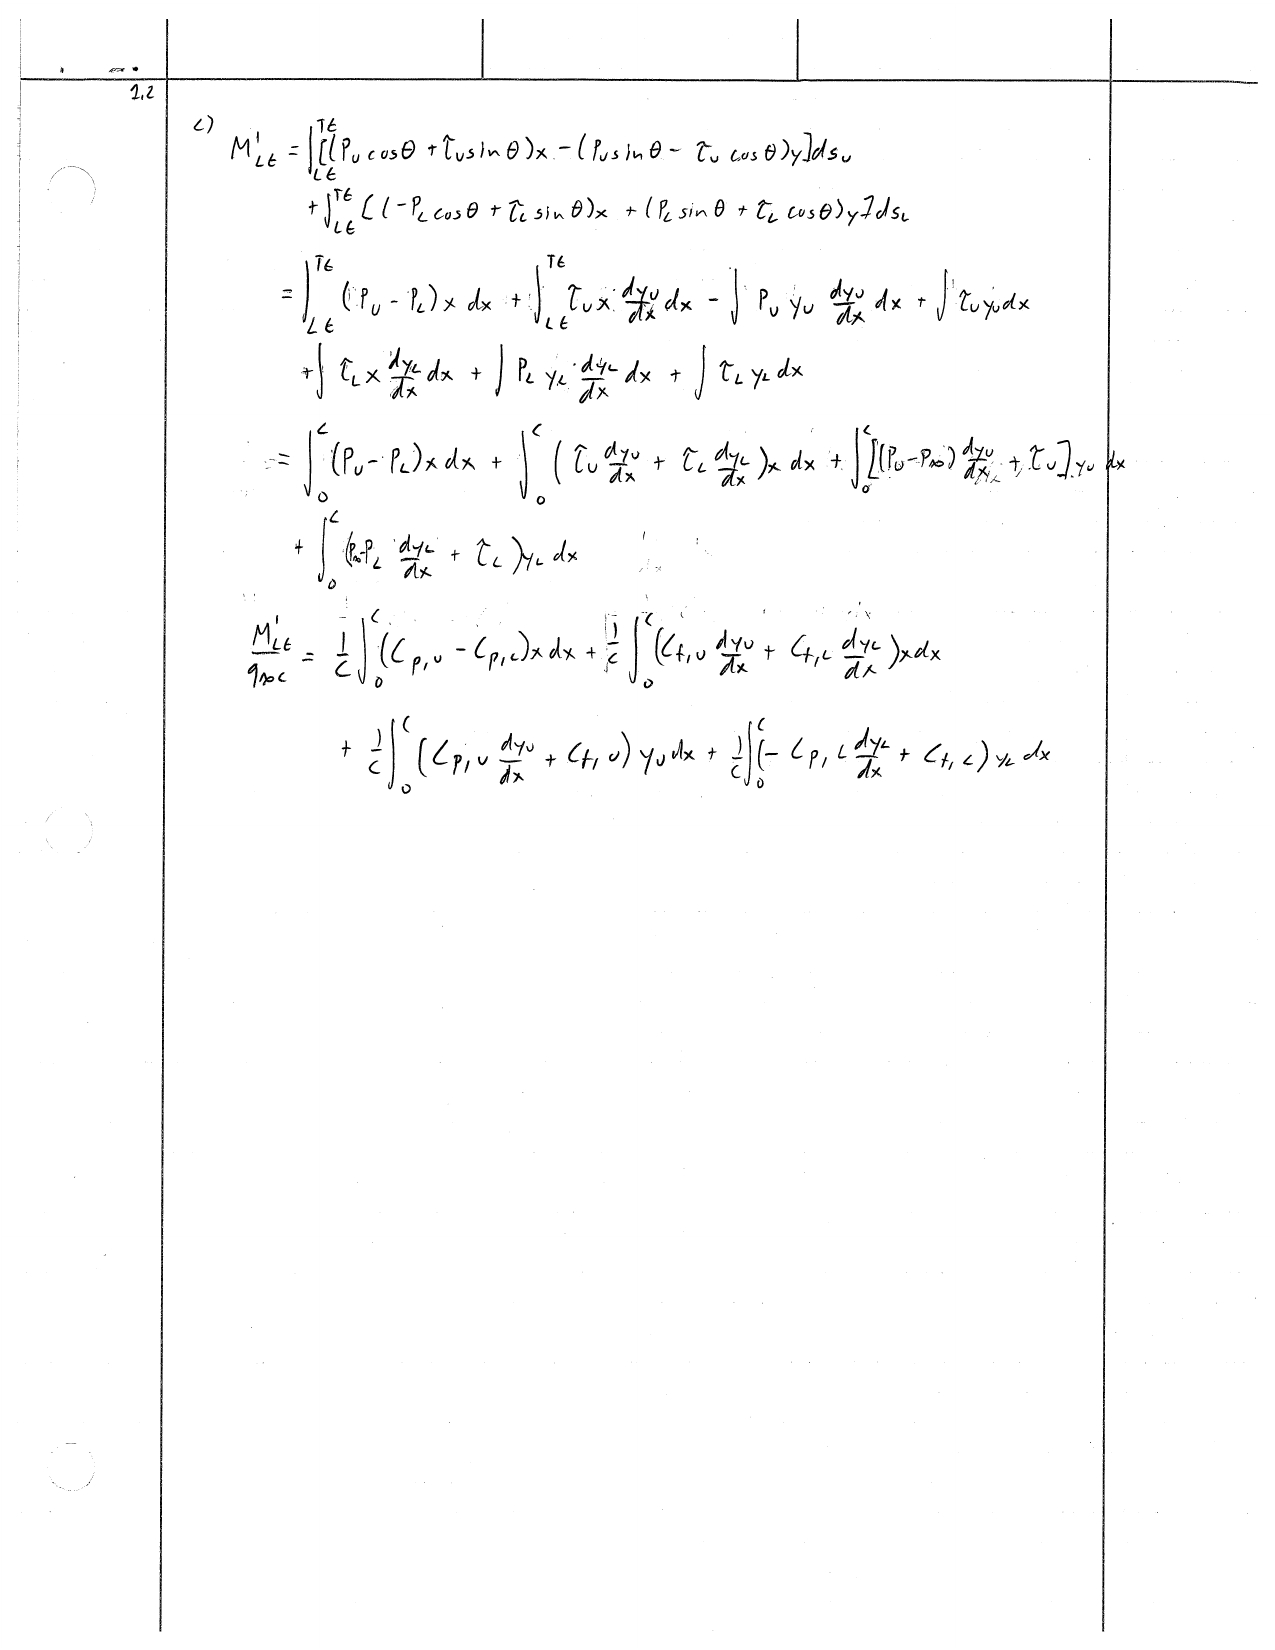 1.2
c) M'_LE = ∫_LE^TE [(P_u cosθ + τ_u sinθ)x - (P_u sinθ - τ_u cosθ)y] ds_u
+ ∫_LE^TE [(-P_L cosθ + τ_L sinθ)x + (P_L sinθ + τ_L cosθ)y] ds_L
= ∫_LE^TE (P_u - P_L) x dx + ∫_LE^TE τ_u x dy_u/dx dx - ∫ P_u y_u dy_u/dx dx + ∫ τ_u y_u dx
+ ∫ τ_L x dy_L/dx dx + ∫ P_L y_L dy_L/dx dx + ∫ τ_L y_L dx
= ∫_0^c (P_u - P_L) x dx + ∫_0^c (τ_u dy_u/dx + τ_L dy_L/dx) x dx + ∫_0^c [(P_u - P_∞) dy_u/dx + τ_u] y_u dx
+ ∫_0^c (P_∞ - P_L dy_L/dx + τ_L) y_L dx
M'_LE/q_∞c = 1/c ∫_0^c (C_p,u - C_p,L) x dx + 1/c ∫_0^c (C_f,u dy_u/dx + C_f,L dy_L/dx) x dx
+ 1/c ∫_0^c (C_p,u dy_u/dx + C_f,u) y_u dx + 1/c ∫_0^c (- C_p,L dy_L/dx + C_f,L) y_L dx